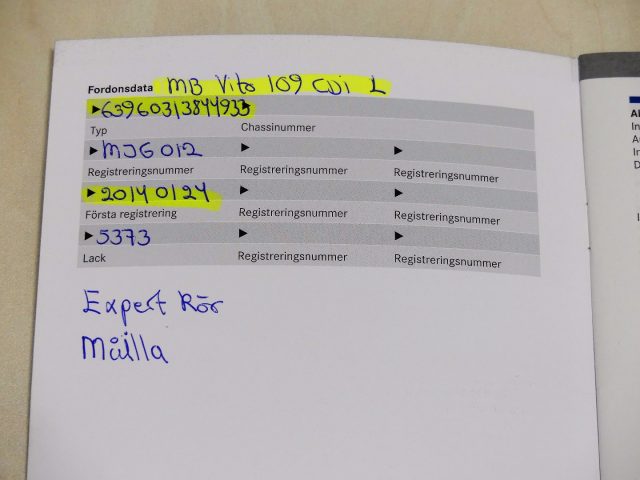 Fordonsdata MB Vito 109 CDi L
▶63960313844933
Typ Chassinummer
▶MJG 012 ▶ ▶
Registreringsnummer Registreringsnummer Registreringsnummer
▶20140124 ▶ ▶
Första registrering Registreringsnummer Registreringsnummer
▶5373 ▶ ▶
Lack Registreringsnummer Registreringsnummer
Expert Rör